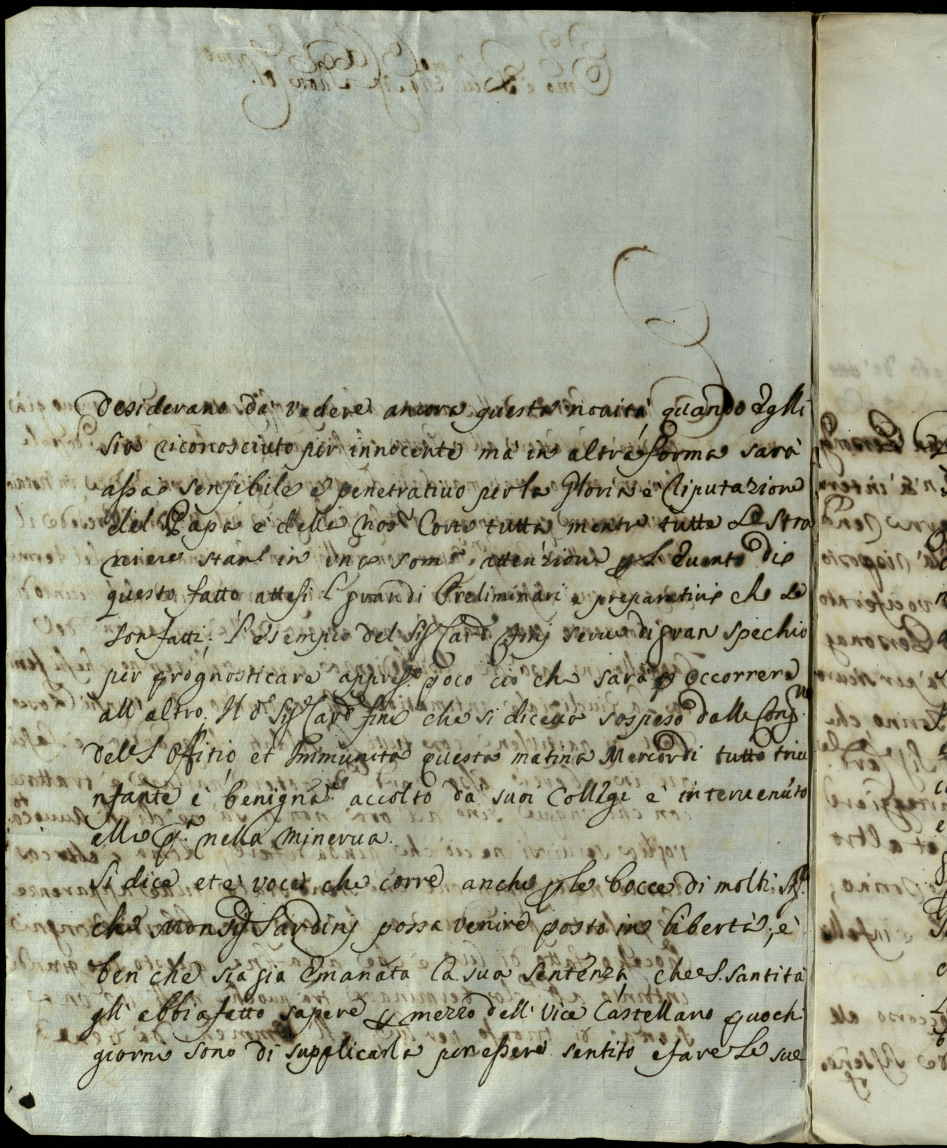 Desiderano da vedere ancora questa novità quando Egli
sia riconosciuto per innocente ma in altra forma sarà
assao sensibile e penetrativo per la Gloria e Riputazione
del Papa e della nos.ª Corte tutta mentre tutte Le Stra
niere stan in una som.ª attenzione p L'Evento di
questo fatto attesi L grandi Preliminari e preparativi che Le
son fatti. L'esempio del Sig Card serve di gran spechio
per prognosticare appres. poco ciò che sarà p occorrere
all'altro. Il d.º Sig Card Fini che si diceva sospeso dalle Cong.ni
Del S Offitio et Immunità questa matina Mercordi tutto triu
nfante e benign.ª accolto da suoi Collegi e intervenuto
alla nella Minerva.
Si dice et è voce che corre anche p le bocce di molti
che Monsig Sardini possa venire posto in libertà, e
ben che sia gia Emanata la sua sentenza che S. Santità
gli abbia fatto sapere p mezzo dell' Vice Castellano puochi
giorni sono di supplicarla per essere sentito e fare Le sue